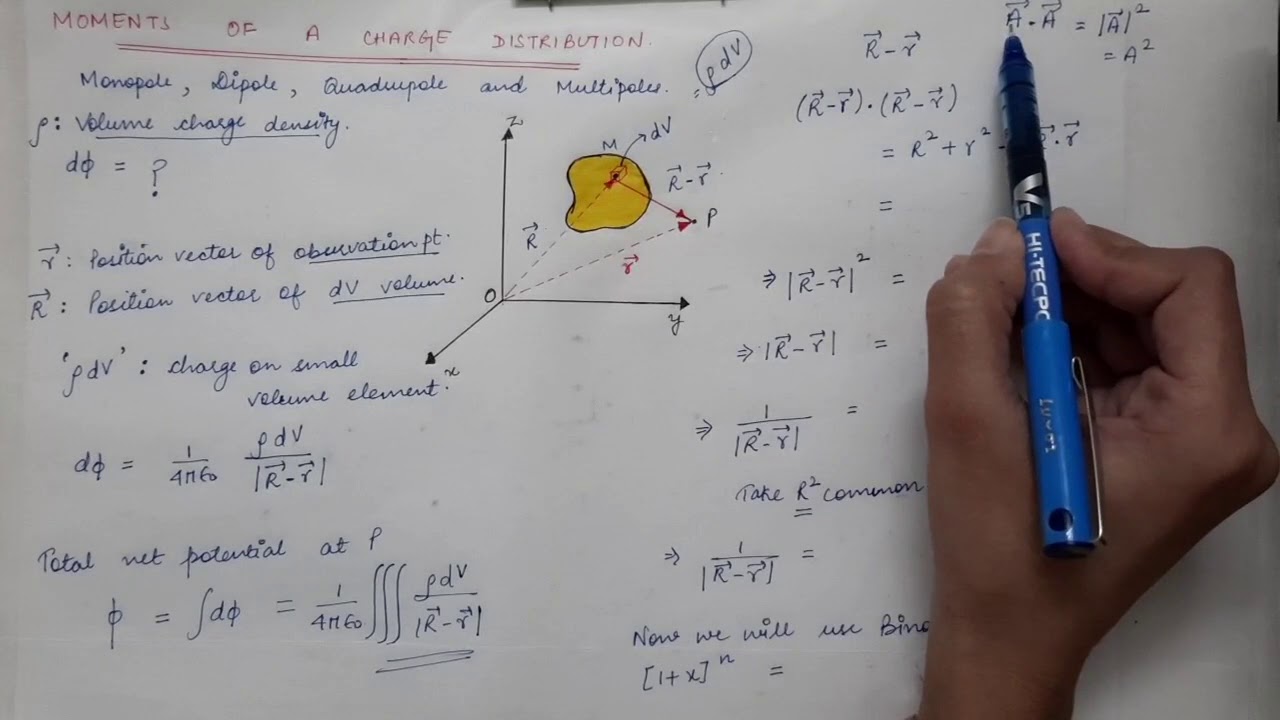 MOMENTS OF A CHARGE DISTRIBUTION.
Monopole, Dipole, Quadrupole and Multipoles.
ρ: Volume charge density.
dϕ = ?
r⃗: Position vector of observation pt.
R⃗: Position vector of dV volume.
'ρdV': charge on small
volume element.
dϕ = 1/4πϵ₀ ρdV/|R⃗-r⃗|
Total net potential at P
ϕ = ∫dϕ = 1/4πϵ₀ ∭ ρdV/|R⃗-r⃗|
ρdV
z
M
dV
R⃗-r⃗
P
R⃗
r⃗
O
y
x
R⃗-r⃗
A⃗.A⃗ = |A⃗|²
= A²
(R⃗-r⃗).(R⃗-r⃗)
= R²+r² R⃗.r⃗
=
⇒ |R⃗-r⃗|² =
⇒ |R⃗-r⃗| =
⇒ 1/|R⃗-r⃗| =
Take R² common
⇒ 1/|R⃗-r⃗| =
Now we will use
[1+x]ⁿ =
V5
HI-TECPO
Luxor